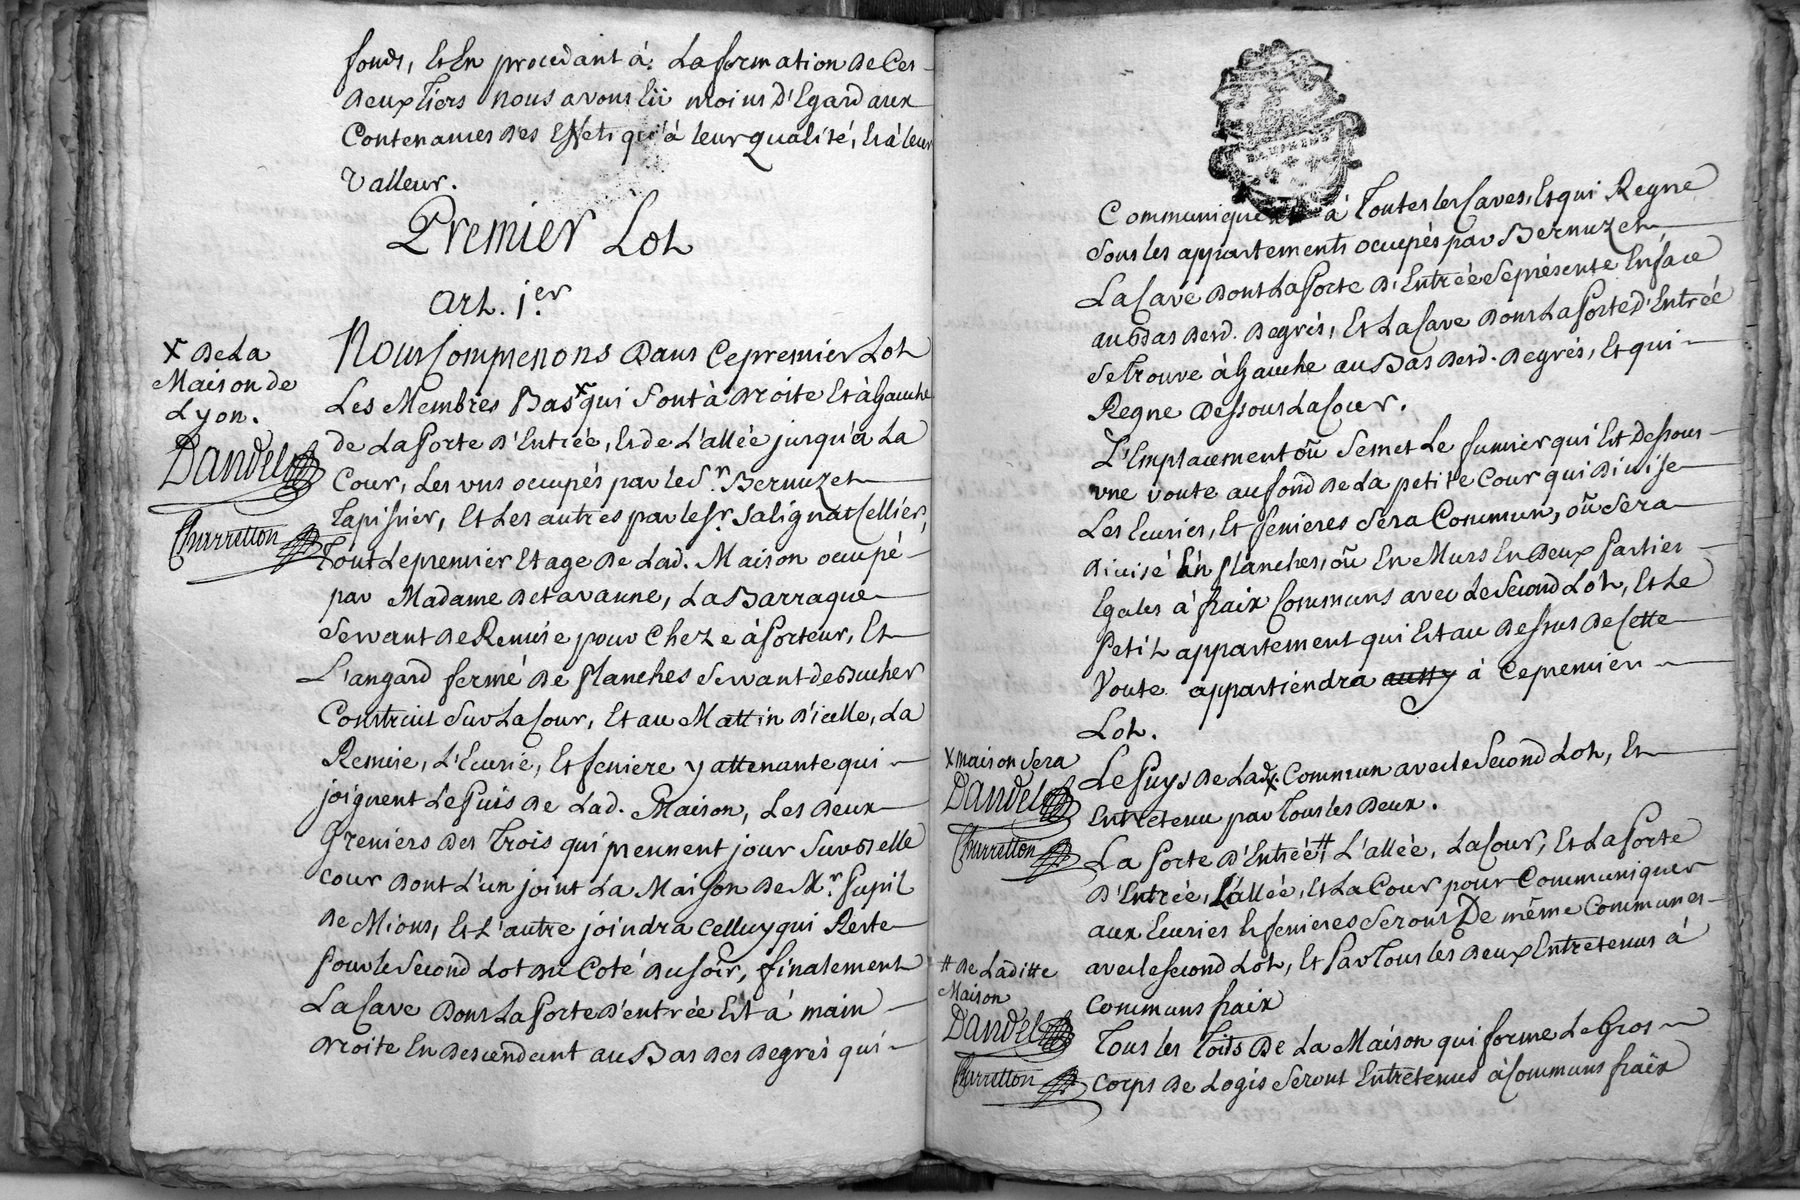 fonds, Et En procedant à La formation de Ces
deux Tiers nous avons Eü moins d'Egard aux
Contenances des Effets qu'à leur qualité, Et à leur
Valleur.
Premier Lot
Art. 1er
X de La
Maison de
Lyon.
Dandel
Charretton
Nous Comprenons dans Ce premier Lot
Les Membres Bas X qui sont à droite Et à Gauche
de La Porte d'Entrée, Et de L'allée jusqu'à La
Cour, Les uns occupés par le Sr. Bernuzet
Tapissier, Et Les autres par le Sr. Salignat Sellier,
Tout Le premier Etage de Lad. Maison occupé
par Madame de Tavanne, La Barraque
Servant de Remise pour Cheze à Porteur, Et
L'angard fermé de Planches Servant de Bucher
Construit Sur La Cour, Et au Mattin d'icelle, La
Remise, L'Ecurie, Et feniere y attenante qui
joignent Le Puis de Lad. Maison, Les deux
Greniers des Trois qui prennent jour Sur
cour dont L'un joint La Maison de Mr. Pupil
de Mions, Et L'autre joindra Celluy qui Reste
Pour le Second Lot du Coté du Soir, finalement
La Cave dont La Porte d'entrée Est à main
droite En descendant au Bas des degrés qui
Communiquent à Toutes les Caves, Et qui Regne
Sous les appartements occupés par Bernuzet
La Cave dont La Porte d'Entrée Se présente En face
au Bas desd. degrés, Et La Cave dont La Porte d'Entrée
Se Trouve à Gauche au Bas desd. degrés, Et qui
Regne dessous La Cour.
L'Emplacement où Se met Le fumier qui Est dessous
une voute au fond de La petitte Cour qui divise
Les Ecuries, Et fenieres Sera Commun, où Sera
divisé En Planches, où En Murs En deux Parties
Egales à fraix Communs avec Le Second Lot, Et Le
Petit appartement qui Est au dessus de Cette
Voute appartiendra aussy à Ce premier
Lot.
X maison Sera
Dandel
Charretton
Le Puys de Lad. X Commun avec le Second Lot, Et
Entretenu par Tous les deux.
La Porte d'Entrée # L'allée, La Cour, Et La Porte
d'Entrée, L'allée, Et La Cour pour Communiquer
aux Ecuries Et fenieres Seront De même Communes
avec le Second Lot, Et Par Tous les deux Entretenus à
communs fraix
# de Laditte
Maison
Dandel
Charretton
Tous les Toits de La Maison qui forme Le Gros
Corps de Logis Seront Entretenus à Communs fraix